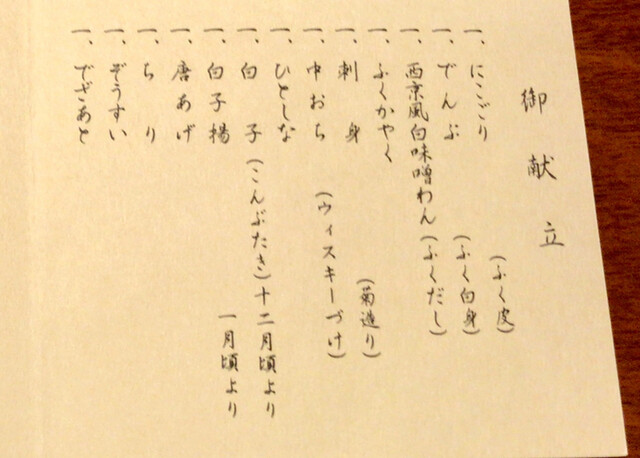 御献立
一、にこごり(ふく皮)
一、でんぶ(ふく白身)
一、西京風白味噌わん(ふくだし)
一、ふくかやく
一、刺身(菊造り)
一、中おち(ウィスキーづけ)
一、ひとしな
一、白子(こんぶたき)十二月頃より
一、白子揚 一月頃より
一、唐あげ
一、ちり
一、ぞうすい
一、でざあと